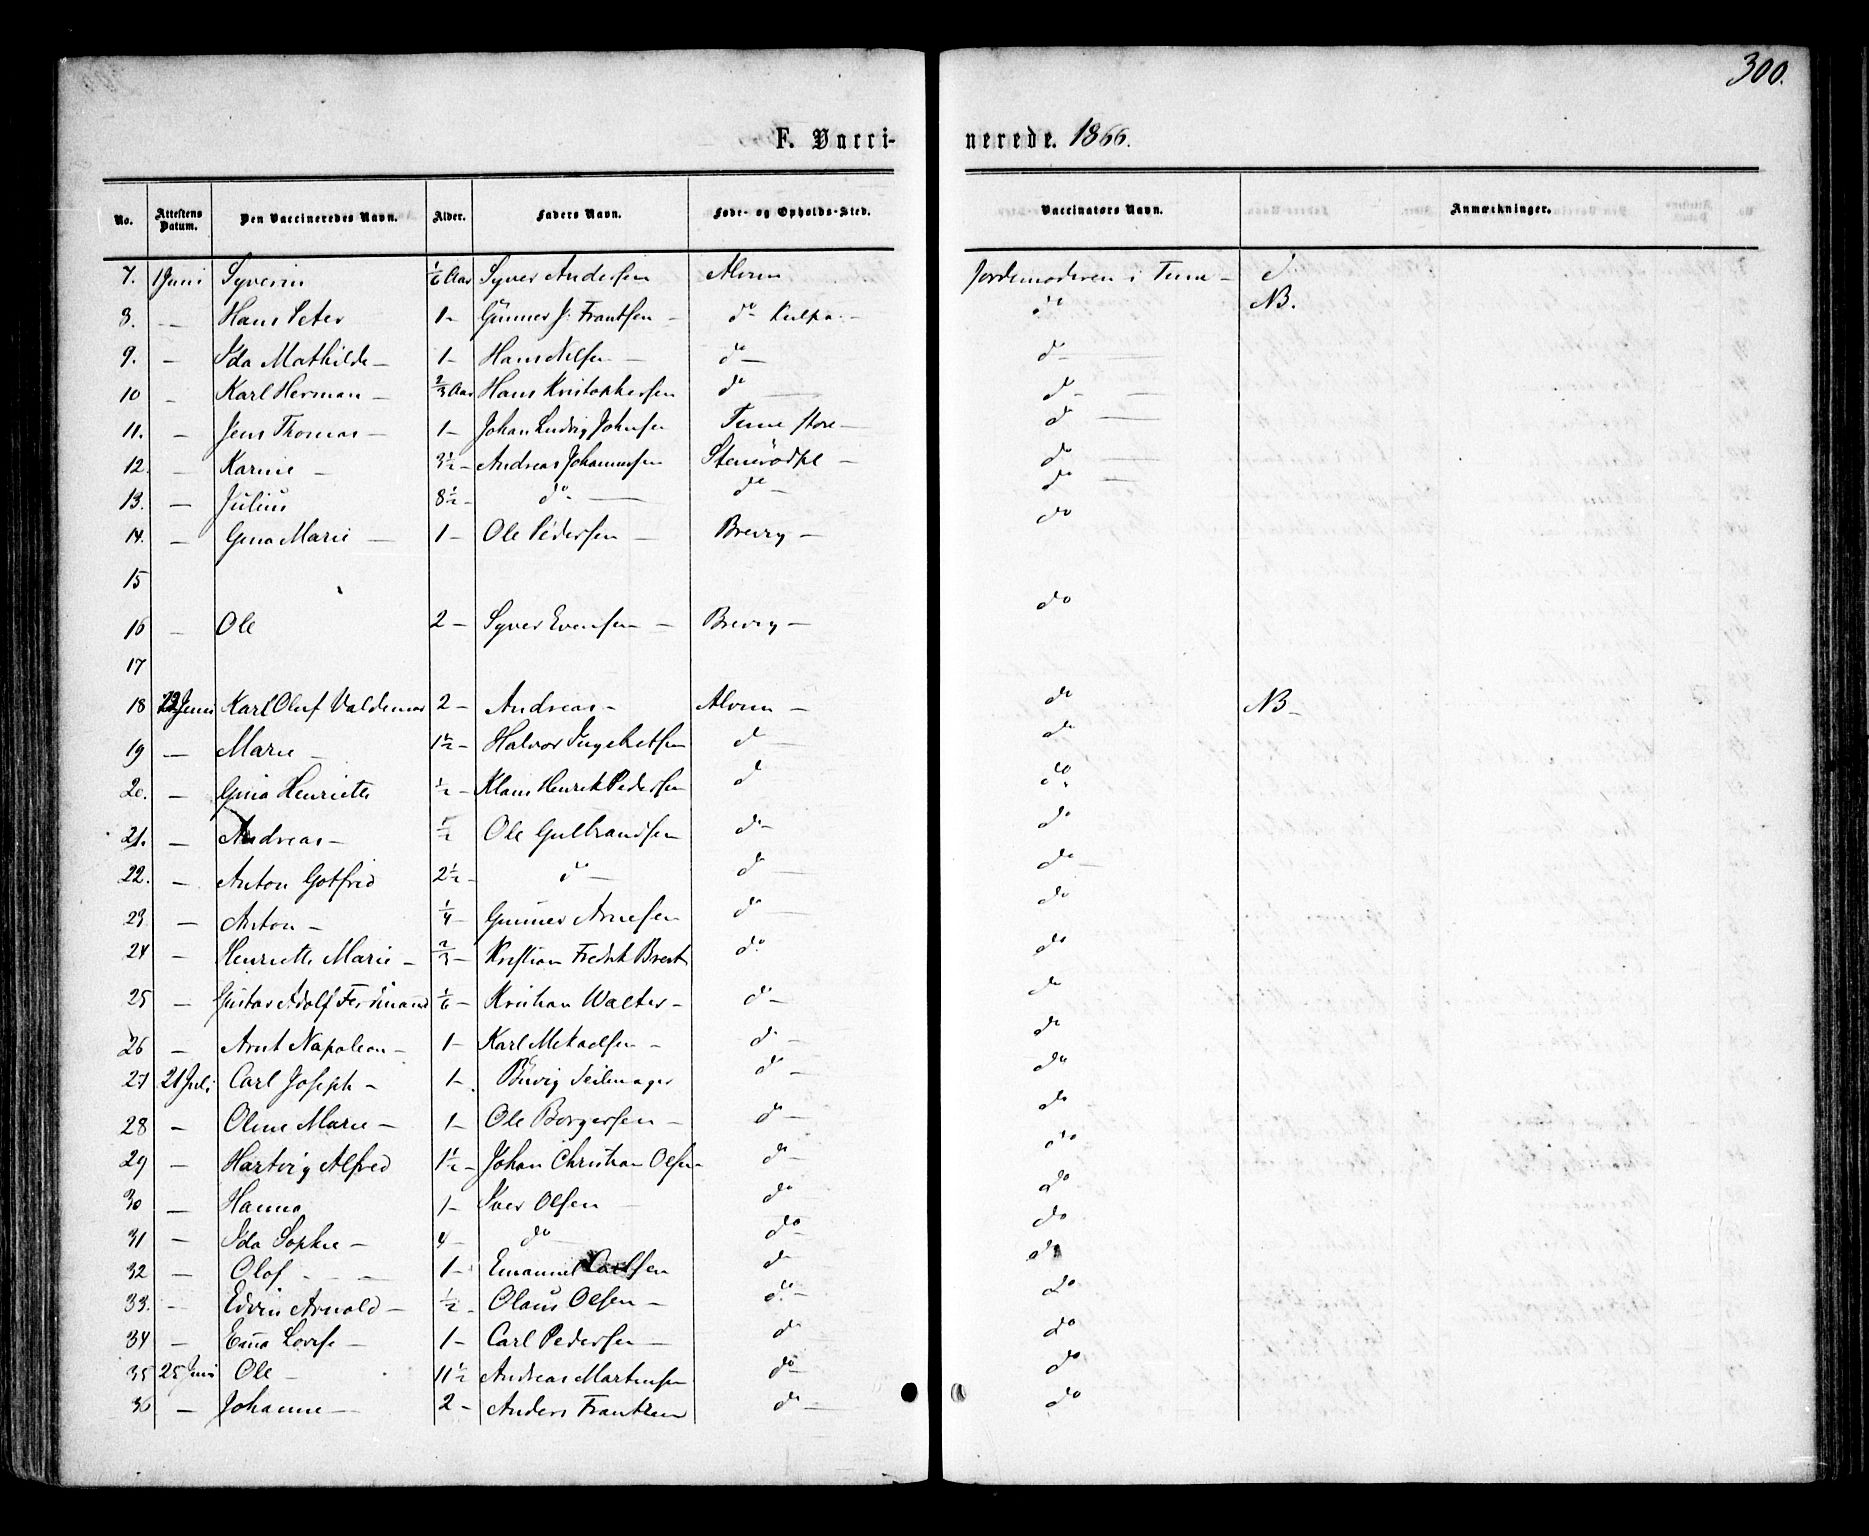 300.
F. Vacci- nerede. 1866.
No. Attestens Datum. Den Vaccineredes Navn. Alder. Faders Navn. Føde- og Opholds-Sted. Vaccinators Navn. Anmærkninger.
7. 1 Juni Syverin 1/6 Aar Syver Andersen Alvim Jordemoderen i Tune - d
8. - Hans Peter 1 - Gunner J. Frantsen - do Kulpe - do NB.
9. - Ida Mathilde - 1 - Hans Nilsen - do - do -
10 - Karl Herman - 2/3 Aar Hans Kristophersen do do -
11. - Jens Thomas - 1 - Johan Ludvig Johnsen Tune store - do
12. - Karine - 3 1/2 - Andreas Johannesen Stenrødpl - do
13. - Julius 8 1/2 - do - do - do
14. - Gina Marie - 1 - Ole Pedersen - Brevig - do
15
16 - Ole 2 - Syver Evensen - Brevig - do
17
18 22 Juni Karl Oluf Valdemar 2 - Andreas - Alvim - do NB -
19 - Marie - 1 1/2 - Halvor Ingebretsen d - do
20. - Gina Henriette 1/2 - Klaus Henrik Pedersen d do
21. - Andreas - 1/2 Ole Gulbrandsen do - do
22. - Anton Gotfred 2 1/2 - do - do - do -
23 - Anton - 1/4 - Gunner Arnesen do - do
24 - Henriette Marie - 2/3 - Kristian Fredrik do do
25 - Gustav Adolf Ferdinand 1/6 - Kristian Walter - do - do
26 - Arnt Napoleon - 1 - Karl Mekaelsen - do - do
27 21 Juli Carl Joseph - 1 - Seilmager do - do
28 - Oline Marie - 1 - Ole Borgersen - do - do
29 - Hartvig Alfred 1 1/2 - Johan Christian Olsen - do - do
30 - Hanna 1 - Iver Olsen - do do
31 - Ida Sophie - 4 - do - do - do
32 - Olof - 1 - Emanuel Carlsen do - do
33. - Edvin Arnold - 1/2 - Olaus Olsen - do - do
34 - Emma Lovise - 1 - Carl Pedersen - do do
35 25 Juni Ole - 11 1/2 Andreas Martinsen do - do
36 - Johanne - 2 - Anders Frantzen do - do